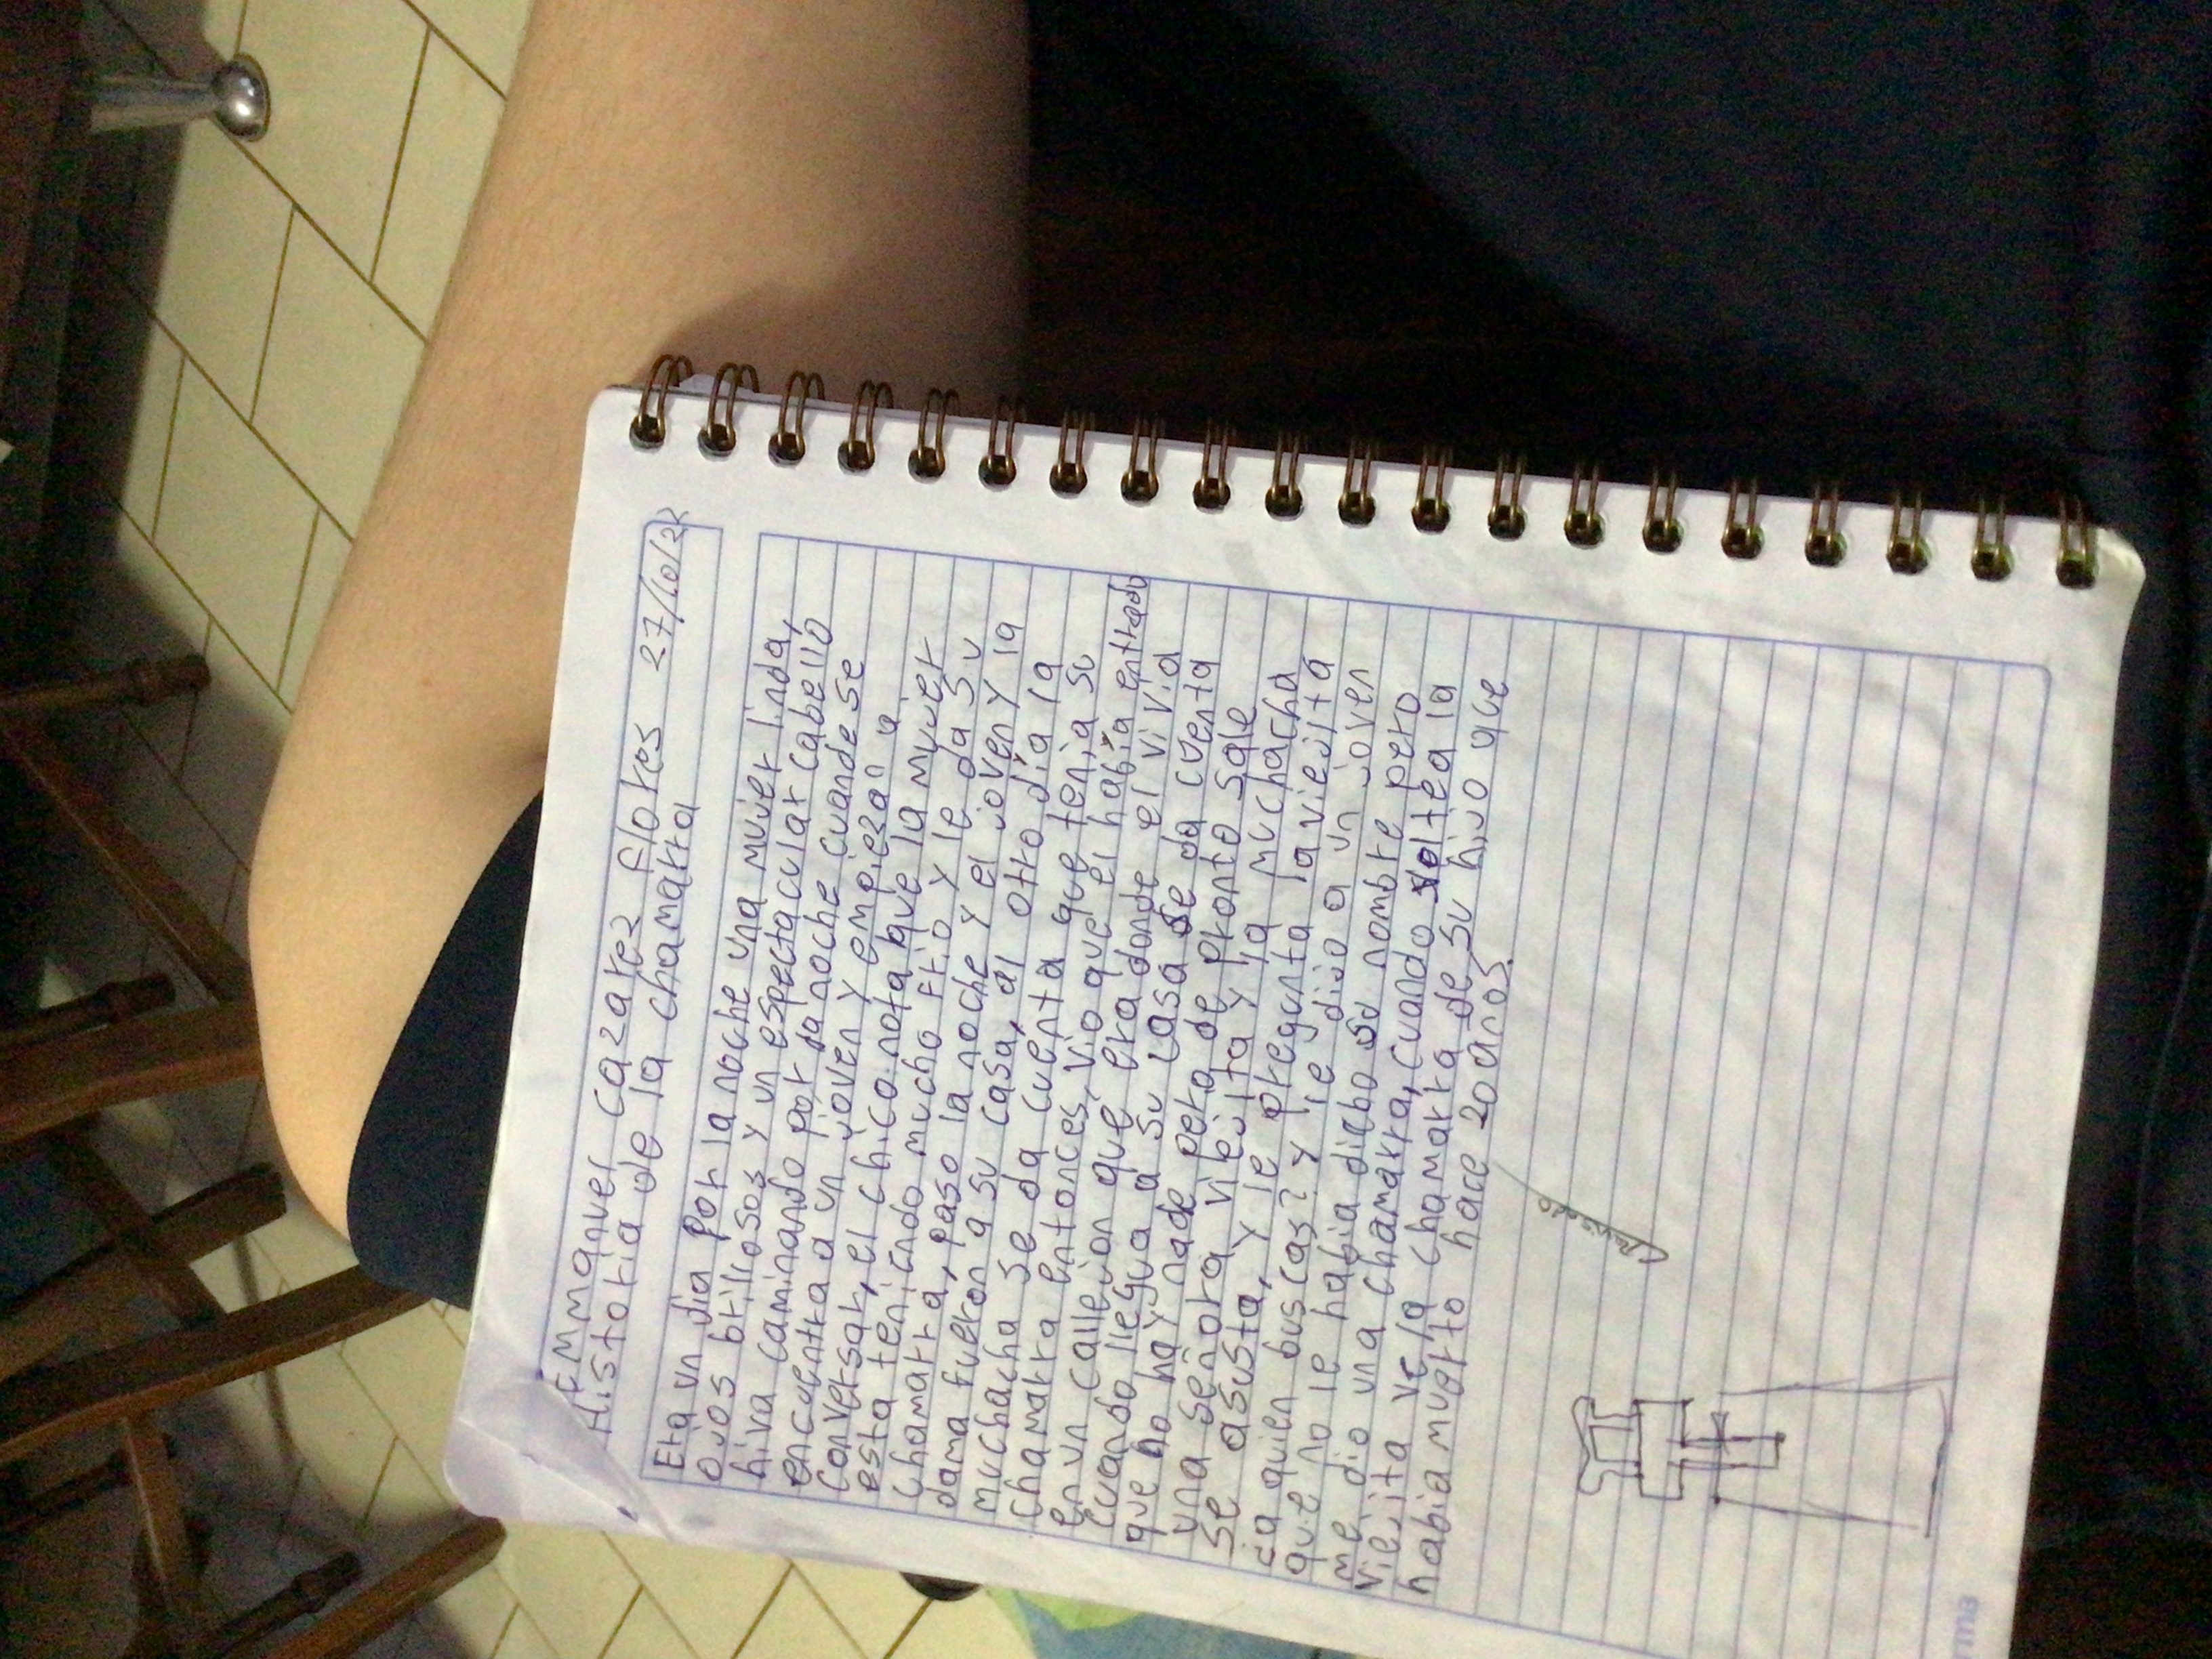 Emmanuel Cazarez flores 27/10/22
Historia de la chamarra
Era un dia por la noche una mujer linda,
ojos brillosos y un espectacular cabello
hiva caminando por la noche cuande se
encuentra a un joven y empiezan a
conversar, el chico nota que la mujer
esta teniendo mucho frio y le da su
chamarra, paso la noche y el joven y la
dama fueron a su casa, al otro día la
muchacha se da cuenta que tenia su
chamarra entonces, vio que el había entrado
en un callejon que era donde el vivia
cuando llegua a su casa se da cuenta
que no hay nade pero de pronto sale
una señora viejita y la muchacha
se asusta, y le pregunta la viejita
¿a quien buscas? y le dijo a un joven
que no le habia dicho su nombre pero
me dio una chamarra, cuando voltea la
viejita ve la chamarra de su hijo que
habia muerto hace 20 años.
Revisado